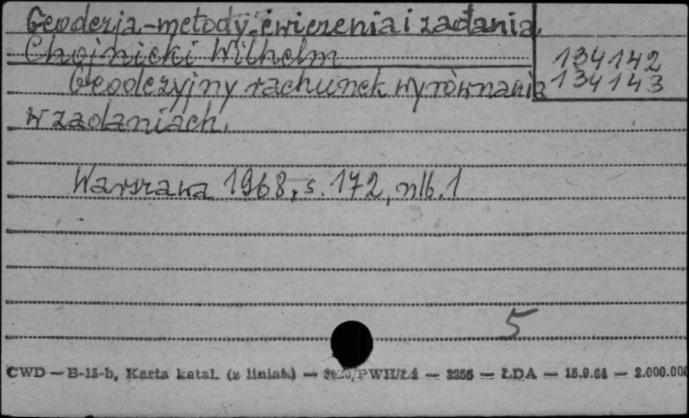 Geodezja-metody, ćwiczenia i zadania.
Chojnicki Wilhelm
134142
134143
Geodezyjny rachunek wyrównania
w zadaniach.
Warszawa 1968, s. 172, nlb. 1
5
CWD — B-15-b, Karta katal. (z liniat.) — PWH/Łż — 3256 — ŁDA — 15.9.64 — 2.000.000